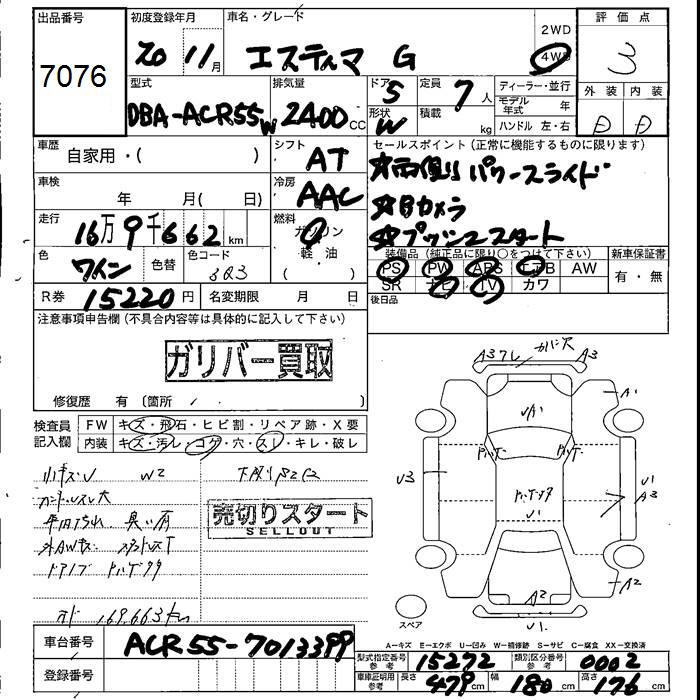 出品番号 初度登録年月 車名・グレード 評価点
7076 20 11月 エスティマ G 2WD 4WD 3
型式 排気量 ドア 5 定員 7人 ディーラー・並行 外装 内装
DBA-ACR55W 2400cc 形状 W 積載 kg モデル年式 年 D D
ハンドル 左・右
車歴 自家用・( ) シフト AT セールスポイント(正常に機能するものに限ります)
☆両側パワースライド
車検 年 月( 日) 冷房 AAC ☆Bカメラ
走行 16万9千662km 燃料 ガソリン・軽油 ☆プッシュスタート
装備品(純正品に限り○をつけて下さい) 新車保証書
色 ワイン 色替 色コード 3Q3 PS PW ABS エアB AW 有・無
SR ナビ TV カワ
R券 15220円 名変期限 月 日 後日品
注意事項申告欄(不具合内容等は具体的に記入して下さい)
ガリバー買取
修復歴 有(箇所 )
検査員記入欄 FW キズ・飛石・ヒビ割・リペア跡・X要
内装 キズ・汚レ・コゲ・穴・スレ・キレ・破レ
小キズU W2 下廻りサビ
ハンドルスレ大
外AWキズ スタッドレスT
売切りスタート
SELLOUT
169,663km
A3 フレ カバー穴 A3
A1
UA1
U3
U1
U1
A3
A2
A2
U1.
スペア
A─キズ E─エクボ U─凹み W─補修跡 S─サビ C─腐食 XX─交換済
車台番号 ACR55-7013399 型式指定番号 参考 15272 類別区分番号 参考 0002
登録番号 車庫証明用 参考 長さ 479cm 幅 180cm 高さ 176cm